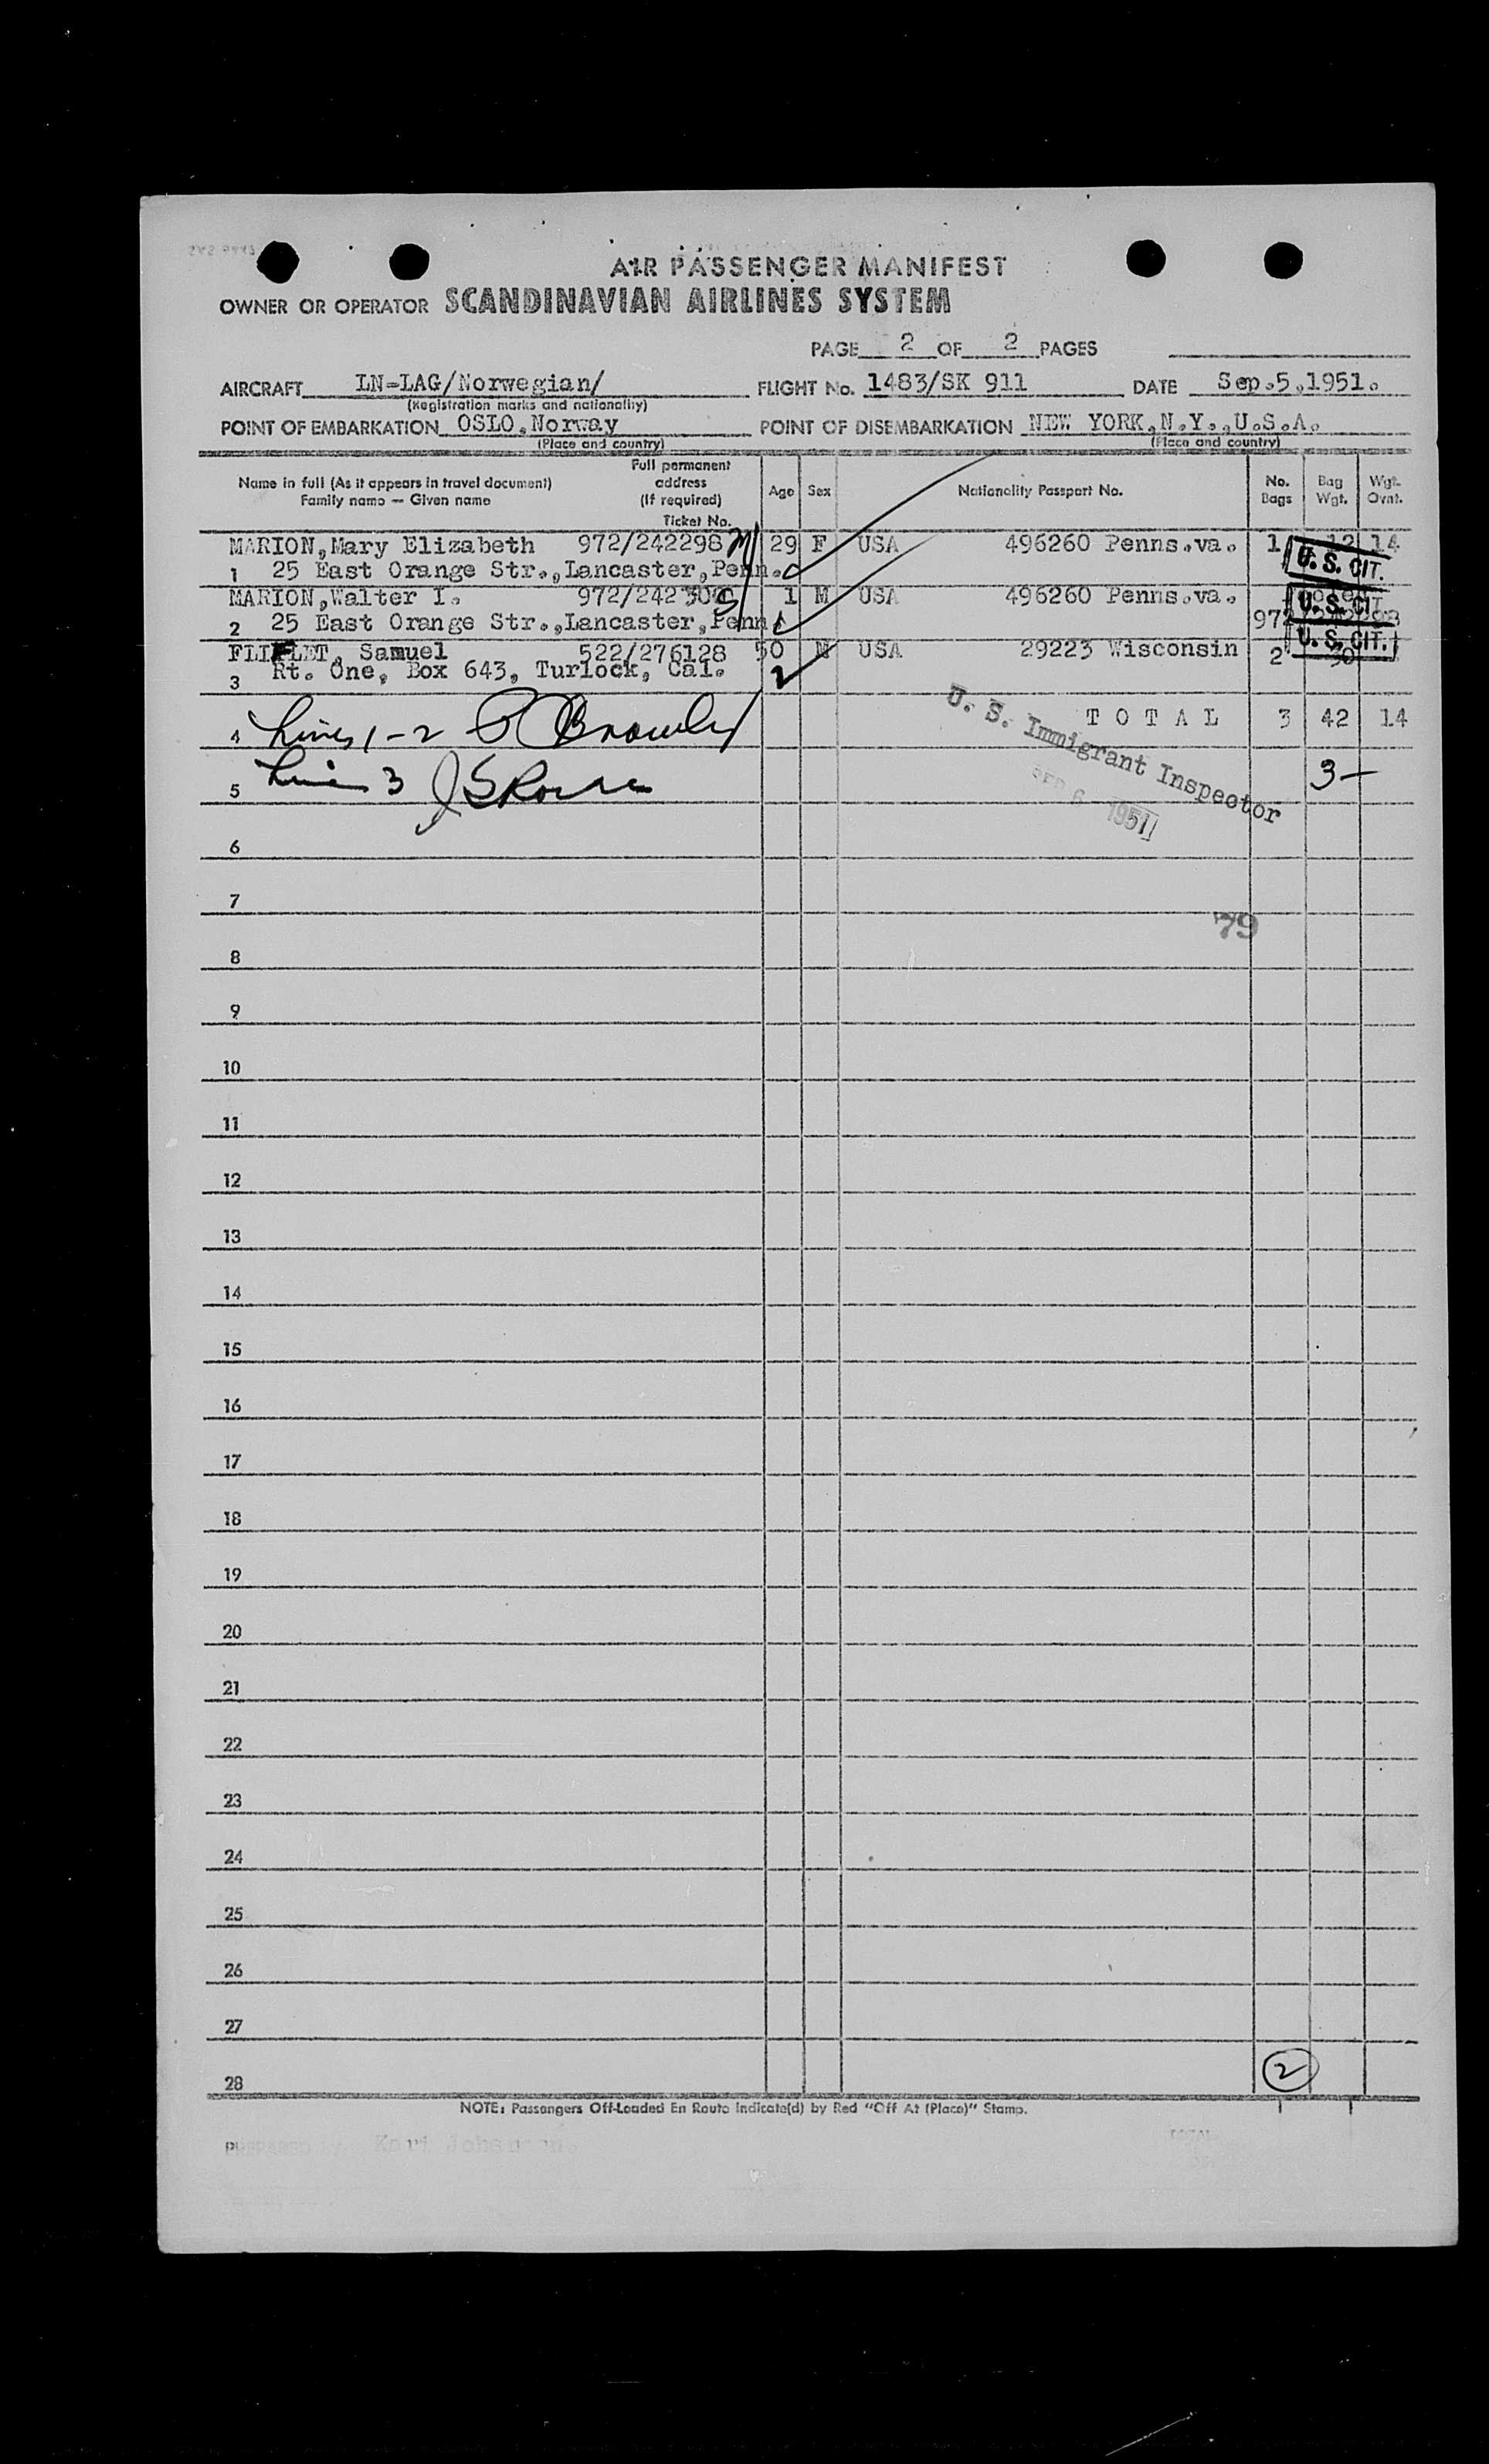 AIR PASSENGER MANIFEST
OWNER OR OPERATOR SCANDINAVIAN AIRLINES SYSTEM
PAGE 2 OF 2 PAGES
AIRCRAFT LN-LAG/Norwegian/ FLIGHT No. 1483/SK 911 DATE Sep.5.1951.
(Registration marks and nationality)
POINT OF EMBARKATION OSLO,Norway POINT OF DISEMBARKATION NEW YORK,N.Y.,U.S.A.
(Place and country) (Place and country)
Name in full (As it appears in travel document) Family name — Given name Full permanent address (If required) Ticket No. Age Sex Nationality Passport No. No. Bags Bag Wgt. Wgt. Ovnt.
MARION,Mary Elizabeth 972/242298 29 F USA 496260 Penns.va. 1 12 14
1 25 East Orange Str.,Lancaster,Penn. U. S. CIT.
MARION,Walter I. 972/242 1 M USA 496260 Penns.va. U. S. CIT.
2 25 East Orange Str.,Lancaster,Penn. 972
FLIFLET, Samuel 522/276128 50 M USA 29223 Wisconsin 2 30 U. S. CIT.
3 Rt. One, Box 643, Turlock, Cal.
4 Lines 1-2 TOTAL 3 42 14
U. S. Immigrant Inspector
5 Line 3 3—
6 1951
6
7
79
8
9
10
11
12
13
14
15
16
17
18
19
20
21
22
23
24
25
26
27
2
28
NOTE: Passengers Off-Loaded En Route Indicate(d) by Red "Off At (Place)" Stamp.
PREPARED by Kari